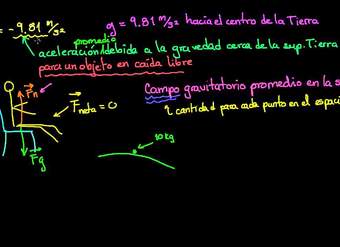 = -9.81 m/s²
g = 9.81 m/s² hacia el centro de la Tierra
promedio
aceleración debida a la gravedad cerca de la sup. Tierra
para un objeto en caída libre
Campo gravitatorio promedio en la s
cantidad para cada punto en el espaci
Fn
Fneta = 0
Fg
10kg